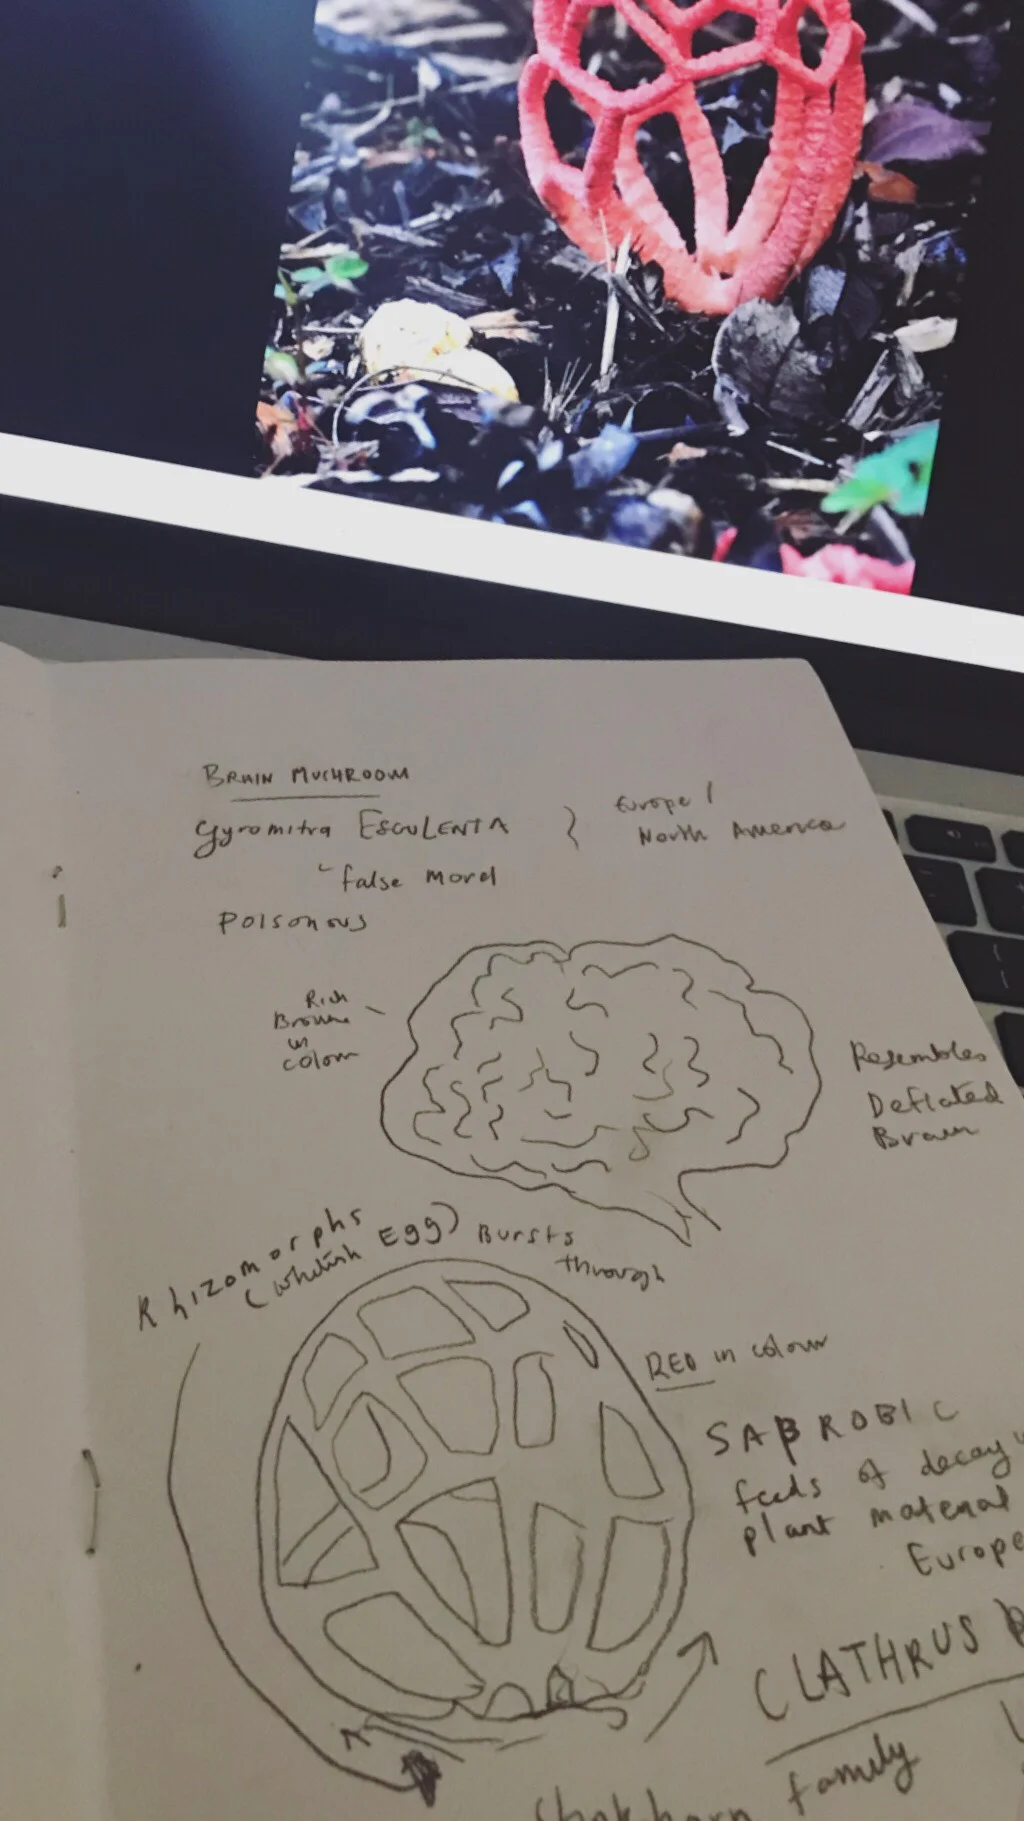 BRAIN MUCHROOM
Gyromitra ESCULENTA } Europe /
North America
false morel
POISONOUS
Rich
Brown
in
colour
Resembles
Deflated
Brain
Rhizomorphs
(Whitish EGG) BURSTS
through
RED in colour
SAPROBIC
feeds of decay
plant material
Europe
CLATHRUS
family